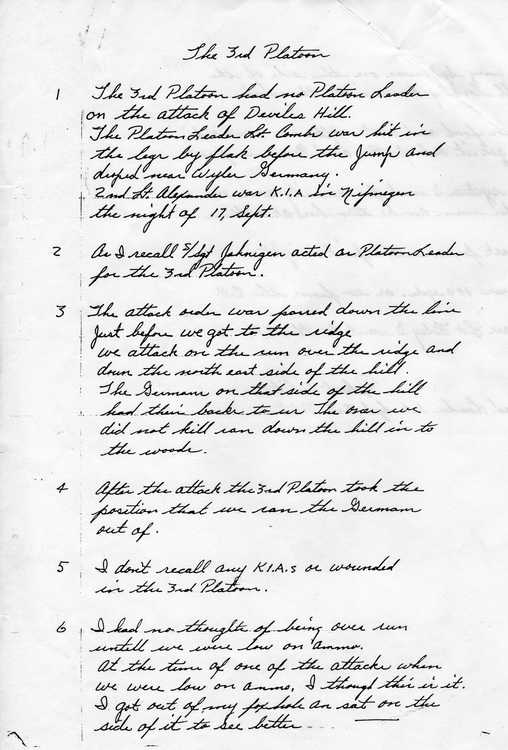 The 3rd Platoon
1 The 3rd Platoon had no Platoon Leader
on the attack of Deviles Hill.
The Platoon Leader Lt. Combs was hit in
the legs by flak before the Jump and
droped near Wyler Germany.
2nd Lt. Alexander was K.I.A in Nijmegen
the night of 17, Sept.
2 As I recall S/Sgt Jahnigen acted as Platoon Leader
for the 3rd Platoon.
3 The attack order was passed down the line
Just before we got to the ridge
we attack on the run over the ridge and
down the north east side of the hill.
The Germans on that side of the hill
had their backs to us The ones we
did not kill ran down the hill in to
the woods.
4 After the attack the 3rd Platoon took the
position that we ran the Germans
out of.
5 I don't recall any K.I.A.s or wounded
in the 3rd Platoon.
6 I had no thoughts of being over run
untill we were low on ammo.
At the time of one of the attacks when
we were low on ammo, I though this is it.
I got out of my foxhole an sat on the
side of it to see better